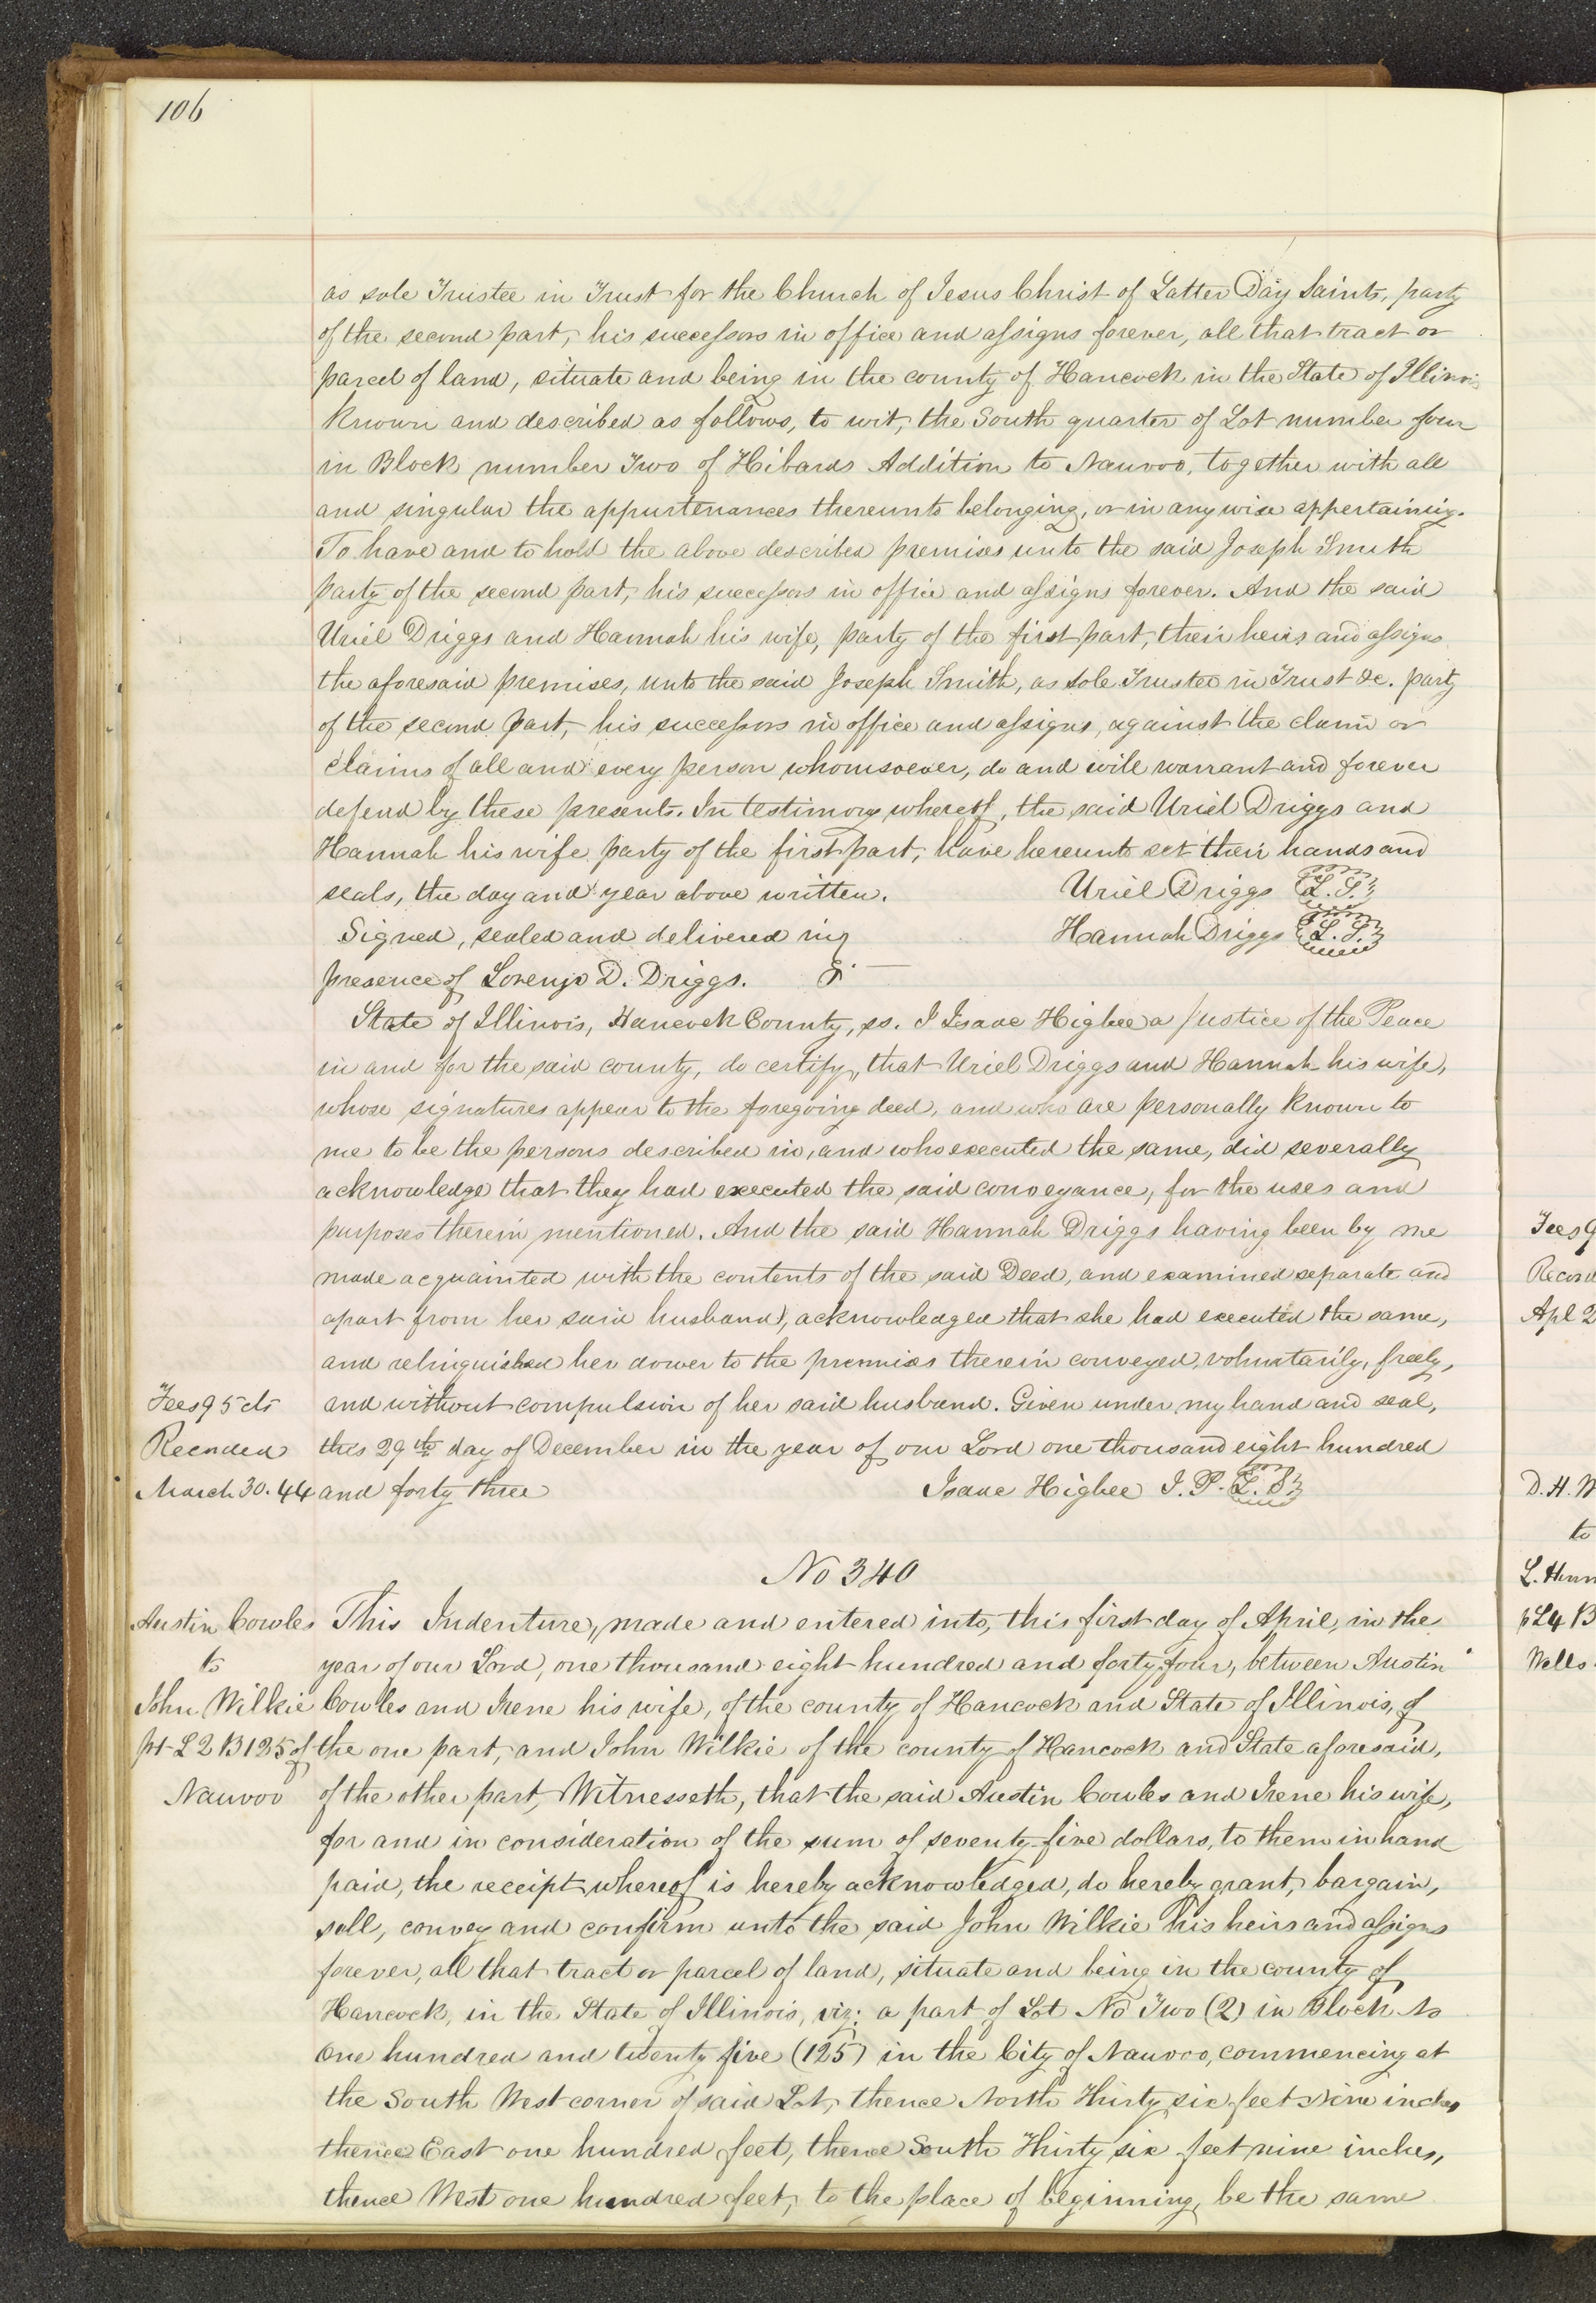 106
as sole Trustee in Trust for the Church of Jesus Christ of Latter Day Saints, party
of the second part, his successors in office and assigns forever, all that tract or
parcel of land, situate and being in the county of Hancock in the State of Illinois
known and described as follows, to wit, the South quarter of Lot number four
in Block number Two of Hibards Addition to Nauvoo, together with all
and singular the appurtenances thereunto belonging, or in any wise appertaining.
To have and to hold the above described premises unto the said Joseph Smith
party of the second part, his successors in office and assigns forever. And the said
Uriel Driggs and Hannah his wife, party of the first part, their heirs and assigns
the aforesaid premises, unto the said Joseph Smith, as sole Trustee in Trust &c. party
of the second part, his successors in office and assigns, against the claim or
claims of all and every person whomsoever, do and will warrant and forever
defend by these presents. In testimony whereof, the said Uriel Driggs and
Hannah his wife party of the first part, have hereunto set their hands and
seals, the day and year above written. Uriel Driggs L. S.
Signed, sealed and delivered in Hannah Driggs L. S.
presence of Lorenzo D. Driggs.
State of Illinois, Hancock County, ss. I Isaac Higbee a Justice of the Peace
in and for the said county, do certify, that Uriel Driggs and Hannah his wife,
whose signatures appear to the foregoing deed, and who are personally known to
me to be the persons described in, and who executed the same, did severally
acknowledge that they had executed the said conveyance, for the uses and
purposes therein mentioned. And the said Hannah Driggs having been by me
made acquainted with the contents of the said Deed, and examined separate and
apart from her said husband, acknowledged that she had executed the same,
and relinquished her dower to the premises therein conveyed, voluntarily, freely,
Fees 95 cts and without compulsion of her said husband. Given under my hand and seal,
Recorded this 29th day of December in the year of our Lord one thousand eight hundred
March 30. 44 and forty three Isaac Higbee J. P. L. S.
No 340
Austin Cowles This Indenture, made and entered into, this first day of April, in the
to year of our Lord, one thousand eight hundred and forty four, between Austin
John Wilkie Cowles and Irene his wife, of the county of Hancock and State of Illinois, of
pt L 2 B 125 of the one part, and John Wilkie of the county of Hancock and State aforesaid,
Nauvoo of the other part, Witnesseth, that the said Austin Cowles and Irene his wife,
for and in consideration of the sum of seventy five dollars, to them in hand
paid, the receipt whereof is hereby acknowledged, do hereby grant, bargain,
sell, convey and confirm unto the said John Wilkie his heirs and assigns
forever, all that tract or parcel of land, situate and being in the county of
Hancock, in the State of Illinois, viz: a part of Lot No Two (2) in Block No
One hundred and twenty five (125) in the City of Nauvoo, commencing at
the South West corner of said Lot, thence North Thirty six feet Nine inches
thence East one hundred feet, thence South Thirty six feet nine inches,
thence West one hundred feet, to the place of beginning, be the same
Fees 9
Record
Apl 2
D. H. W
to
p L4 B
Wells